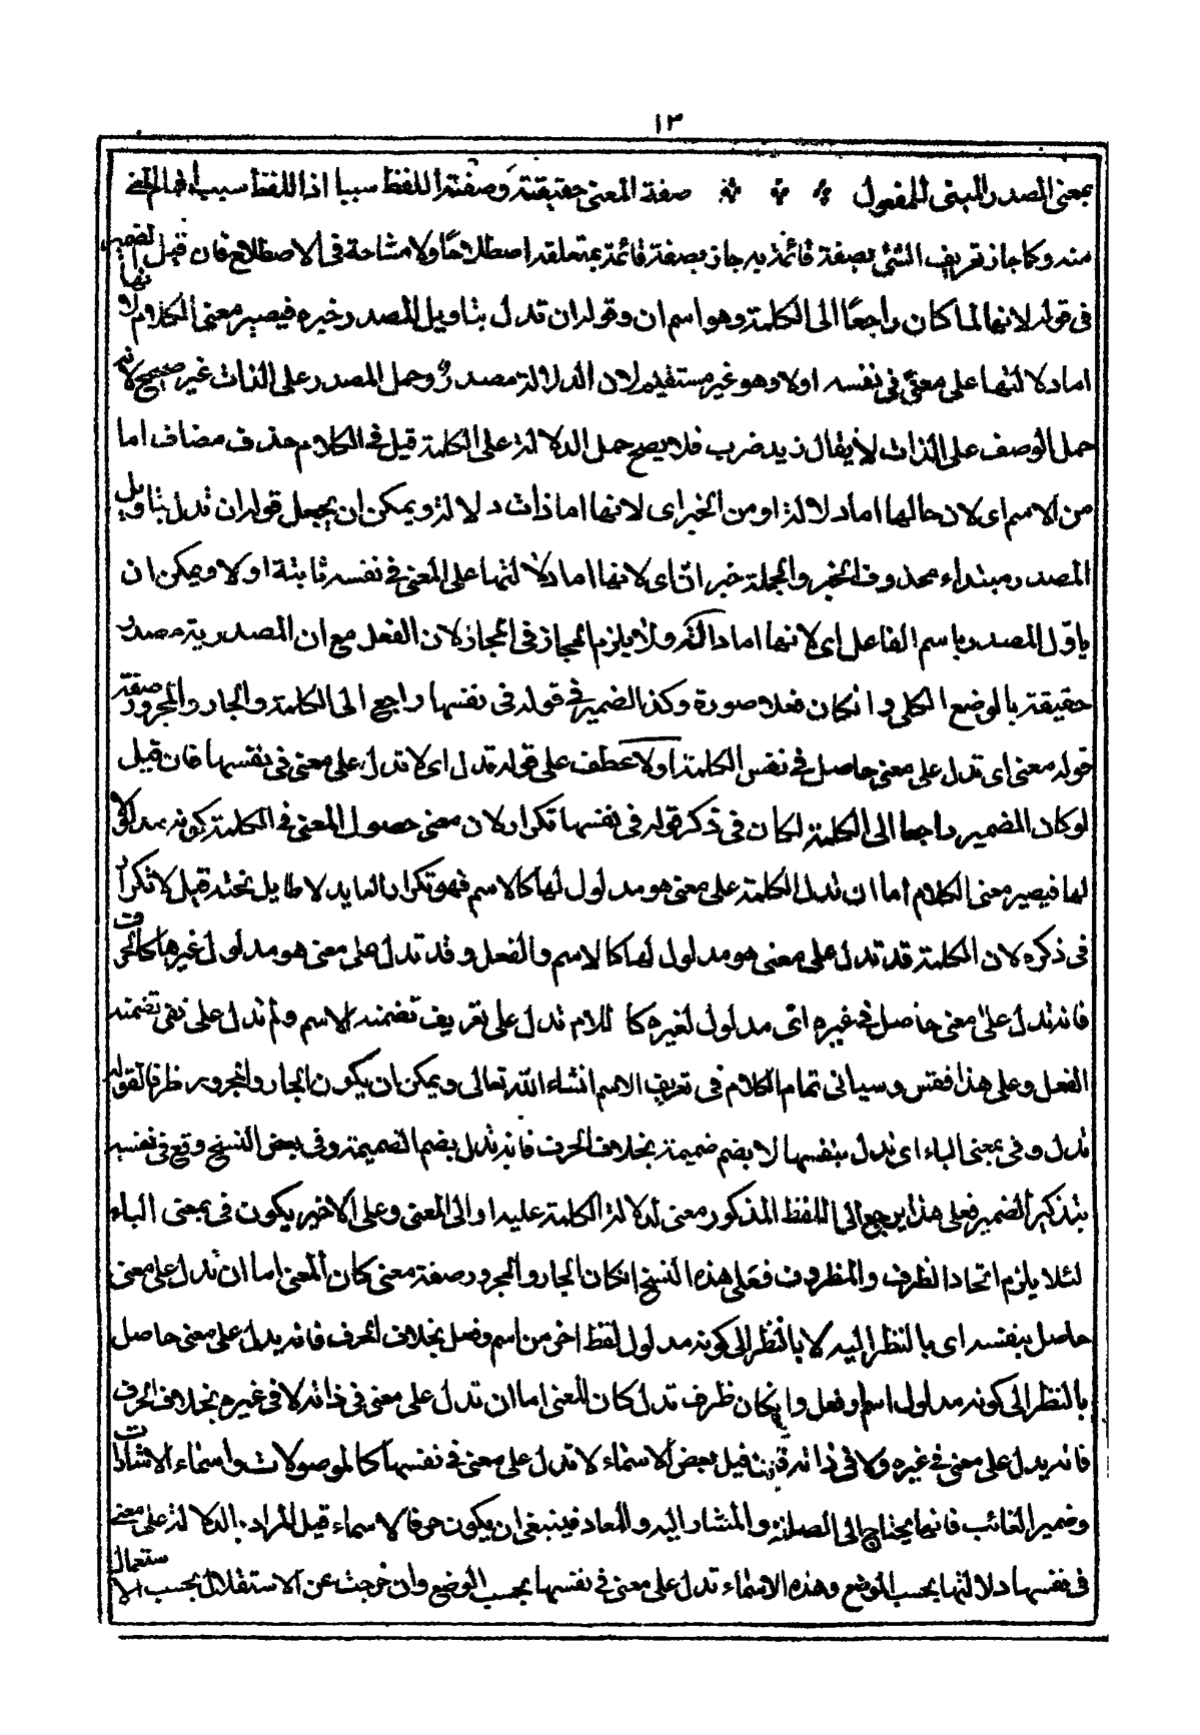 ١٣
بمعنى المصدر المبنى للمفعول صفة المعنى حقيقة وصفته اللفظ سببا اذا اللفظ سبب لفهام المعنى
منه وكما جاز تعريف الشئ بصفة قائمة به جاز بصفة قائمة بمتعلقه اصطلاحًا ولا مشاحة فى الاصطلاح فان قيل الضمير
فى قوله لانها لما كان راجعًا الى الكلمة وهو اسم ان وقوله ان تدل بتاويل المصدر خبره فيصير معنى الكلام لانها
اما دلالتها على معنى فى نفسه اولا وهو غير مستقيم لان الدلالة مصدر وحمل المصدر على الذات غير صحيح لانه
حمل الوصف على الذات لا يقال زيد ضرب فلا يصح حمل الدلالة على الكلمة قيل فى الكلام حذف مضاف اما
من الاسم اى لان حالها اما دلالة او من الخبر اى لانها اما ذات دلالة ويمكن ان يجعل قوله ان تدل بتاويل
المصدر مبتداء محذوف الخبر والجملة خبر ان اى لانها اما دلالتها على المعنى فى نفسه ثابتة اولا ويمكن ان
ياول المصدر باسم الفاعل اى لانها اما دالة ولا يلزم المجاز فى المجاز لان الفعل مع ان المصدرية مصدر
حقيقة بالوضع الكلى وانكان فعلا صورة وكذا الضمير فى قوله فى نفسها راجع الى الكلمة والجار والمجرور صفة
قوله معنى اى تدل على معنى حاصل فى نفس الكلمة اولا عطف على قوله تدل اى لا تدل على معنى فى نفسها فان قيل
لوكان الضمير راجعا الى الكلمة لكان فى ذكر قوله فى نفسها تكرار لان معنى حصول المعنى فى الكلمة كونه مدلولا
لها فيصير معنى الكلام اما ان تدل الكلمة على معنى هو مدلول لها كالاسم فهو تكرار لا طايل تحته قيل لا تكرار
فى ذكره لان الكلمة قد تدل على معنى هو مدلول لها كالاسم والفعل وقد تدل على معنى هو مدلول غيرها كالحرف
فانه تدل على معنى حاصل فى غيره اى مدلول لغيره كا للام تدل على تعريف تضمنه الاسم ولم تدل على نفى تضمنه
الفعل وعلى هذا فقس وسياتى تمام الكلام فى تعريف الاسم انشاء الله تعالى ويمكن ان يكون الجار والمجرور ظرفا لقوله
تدل وفى بمعنى الباء اى تدل بنفسها لا بضم ضميمة بخلاف الحرف فانه تدل بضم الضميمة وفى بعض النسخ وقع فى نفسه
بتذكير الضمير فعلى هذا يرجع الى اللفظ المذكور معنى لدلالة الكلمة عليه او الى المعنى وعلى الاخير يكون فى بمعنى الباء
لئلا يلزم اتحاد الظرف والمظروف فعلى هذه النسخ انكان الجار والمجرور صفة معنى كان المعنى اما ان تدل على معنى
حاصل بنفسه اى بالنظر اليه لا بالنظر الى كونه مدلول لفظ اخر من اسم وفعل بخلاف الحرف فانه يدل على معنى حاصل
بالنظر الى كونه مدلول اسم او فعل وانكان ظرف تدل كان المعنى اما ان تدل على معنى فى ذاته لا فى غيره بخلاف الحرف
فانه يدل على معنى فى غيره ولا فى ذاته فان قيل بعض الاسماء لا تدل على معنى فى نفسها كالموصولات واسماء الاشارات
وضمير الغائب فانها يحتاج الى الصلة والمشار اليه والمعاد فينبغى ان يكون حرفا لا اسماء قيل المراد بالدلالة على معنى
فى نفسها دلالتها بحسب الوضع وهذه الاسماء تدل على معنى فى نفسها بحسب الوضع وان خرجت عن الاستقلال بحسب الاستعمال